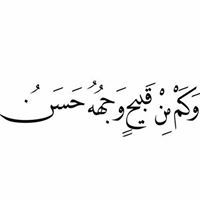 وَكَمْ مِنْ قَبِيحٍ وَجهُهُ حَسَنُ